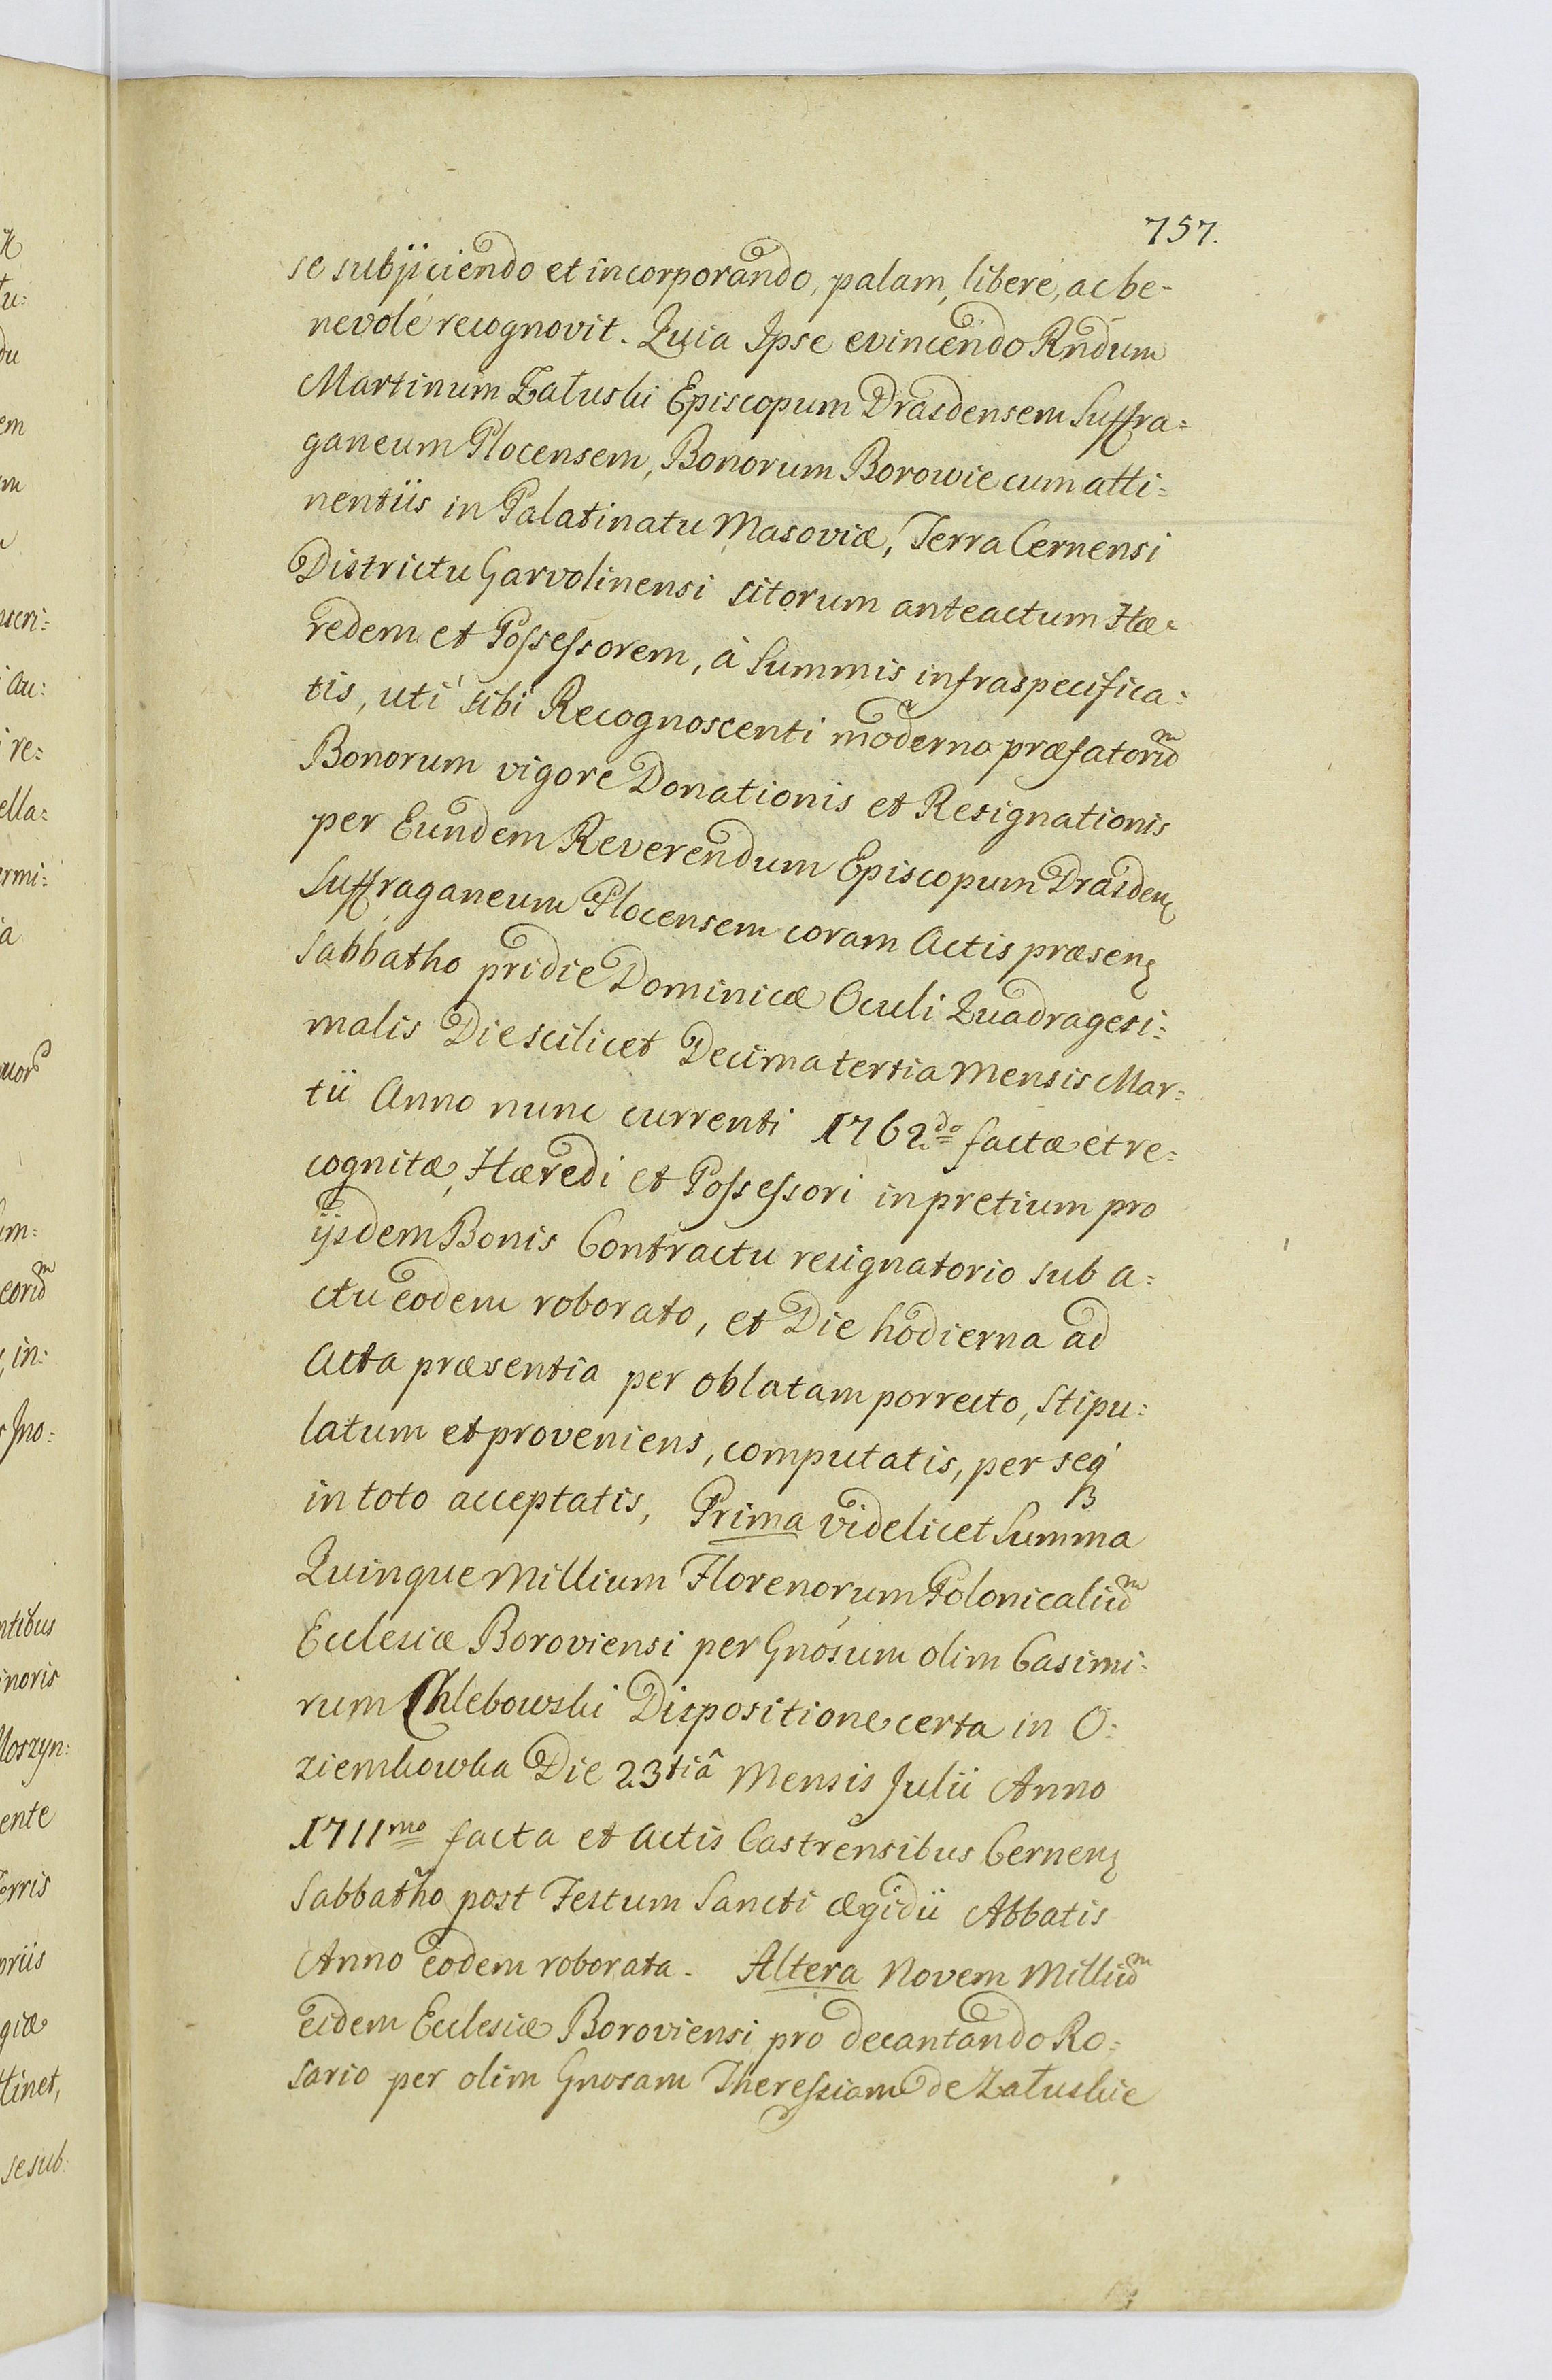 757.
se subjiciendo et incorporando, palam, libere, ac be-
nevolé recognovit. Quia Ipse evincendo Rndum
Martinum Załuski Episcopum Drasdensem Suffra=
ganeum Plocensem, Bonorum Borowie cum atti=
nentiis in Palatinatu Masoviæ, Terra Cernensi
Districtu Garvolinensi sitorum anteactum Hæ=
redem et Possessorem, à Summis infraspecifica=
tis, uti sibi Recognoscenti moderno præfatorũm
Bonorum vigore Donationis et Resignationis
per Eundem Reverendum Episcopum Drasden
Suffraganeum Plocensem coram Actis præsen
Sabbatho pridie Dominicæ Oculi Quadragesi=
malis Die scilicet Decima tertia Mensis Mar=
tii Anno nunc currenti 1762do factæ et re=
cognitæ, Hæredi et Possessori in pretium pro
ijsdem Bonis Contractu resignatorio sub a=
ctu eodem roborato, et Die hodierna ad
Acta præsentia per oblatam porrecto, stipu=
latum et proveniens, computatis, per seq
in toto acceptatis, Prima videlicet Summa
Quinque Millium Florenorum Polonicaliũm
Ecclesiæ Boroviensi per Gnosum olim Casimi=
rum Chlebowski Dispositione certa in O=
ziemkowka Die 23tiâ Mensis Julii Anno
1711mo facta et Actis Castrensibus Cernen
Sabbatho post Festum Sancti Ægidii Abbatis
Anno eodem roborata. Altera Novem Milliũm
eidem Ecclesiæ Boroviensi pro decantando Ro=
sario per olim Gnosam Theressiam de Załuskie